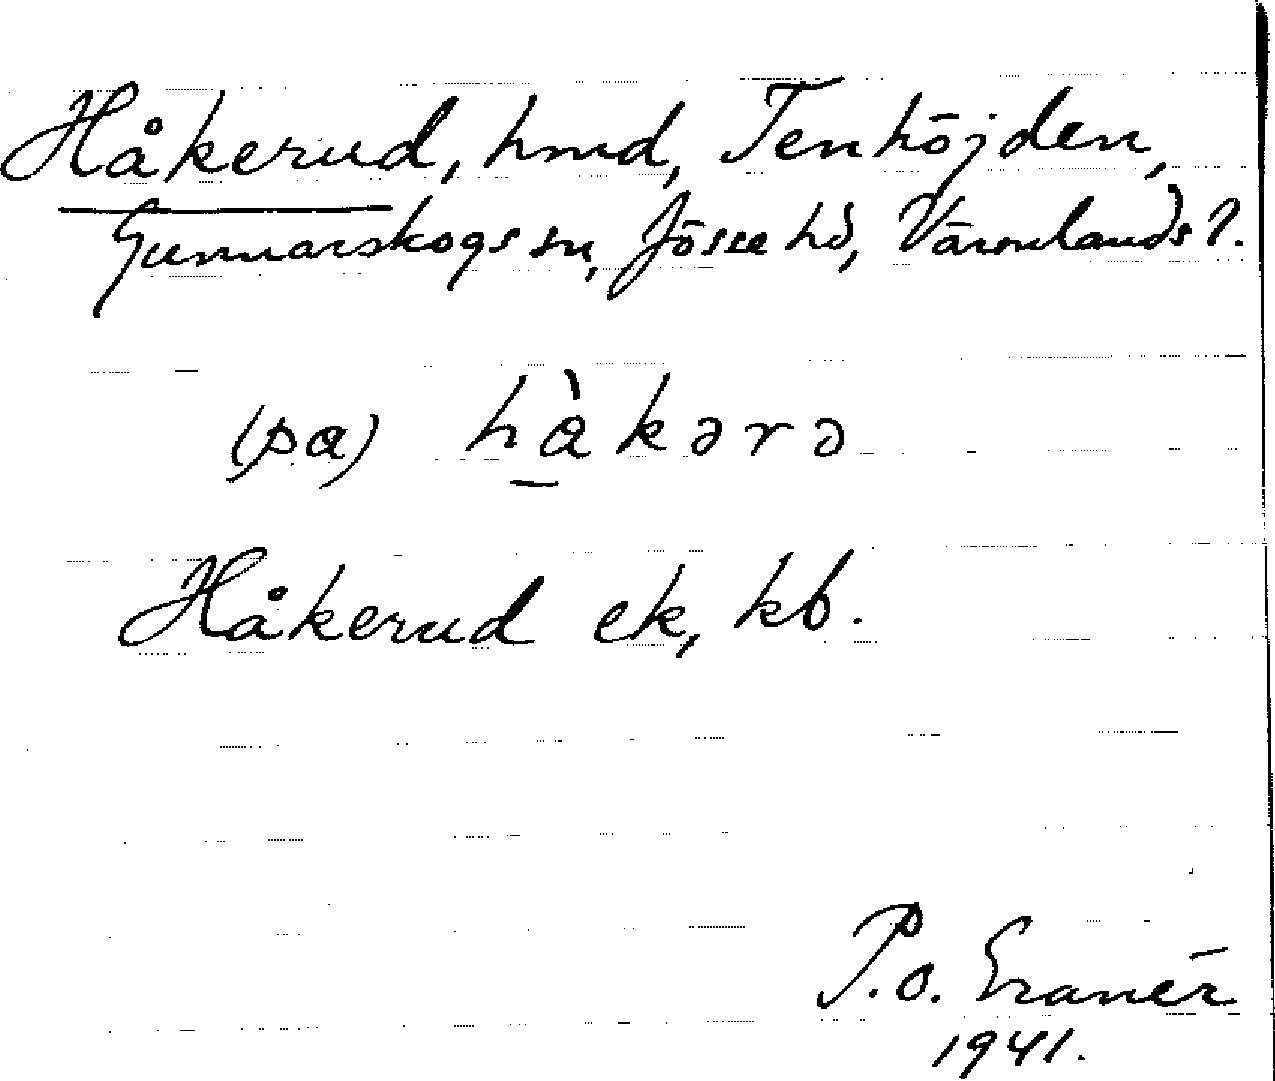 Håkerud, hmd, Tenhöjden,
Gunnarskogs sn, Jösse hd, Värmlands l.
(pa) hàkərə
Håkerud ek, kb.
P.o. Granér
1941.